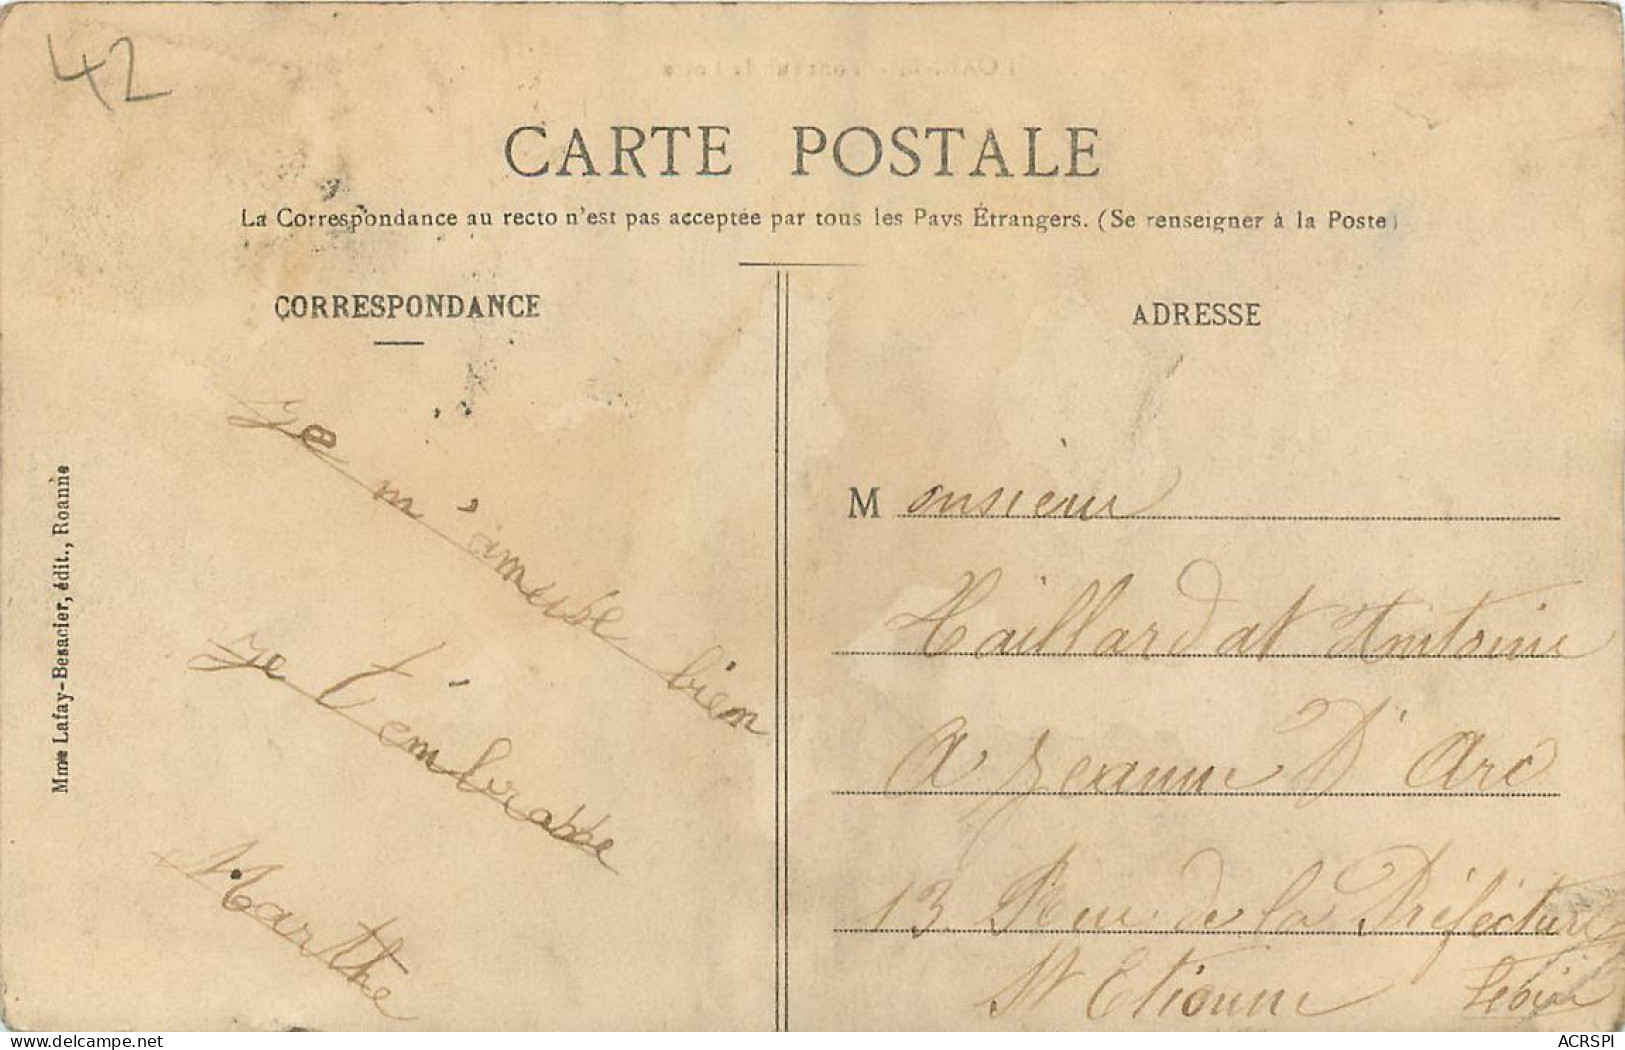 42
CARTE POSTALE
La Correspondance au recto n'est pas acceptée par tous les Pays Étrangers. (Se renseigner à la Poste)
CORRESPONDANCE
Je m'amuse bien
Je t'embrasse
Marthe
Mme Lafay-Bessacier, édit., Roanne
ADRESSE
Monsieur
Haillardat Antoine
A Jeanne D'Arc
13 Rue de la Préfecture
St Etienne Loire
ACRSPI